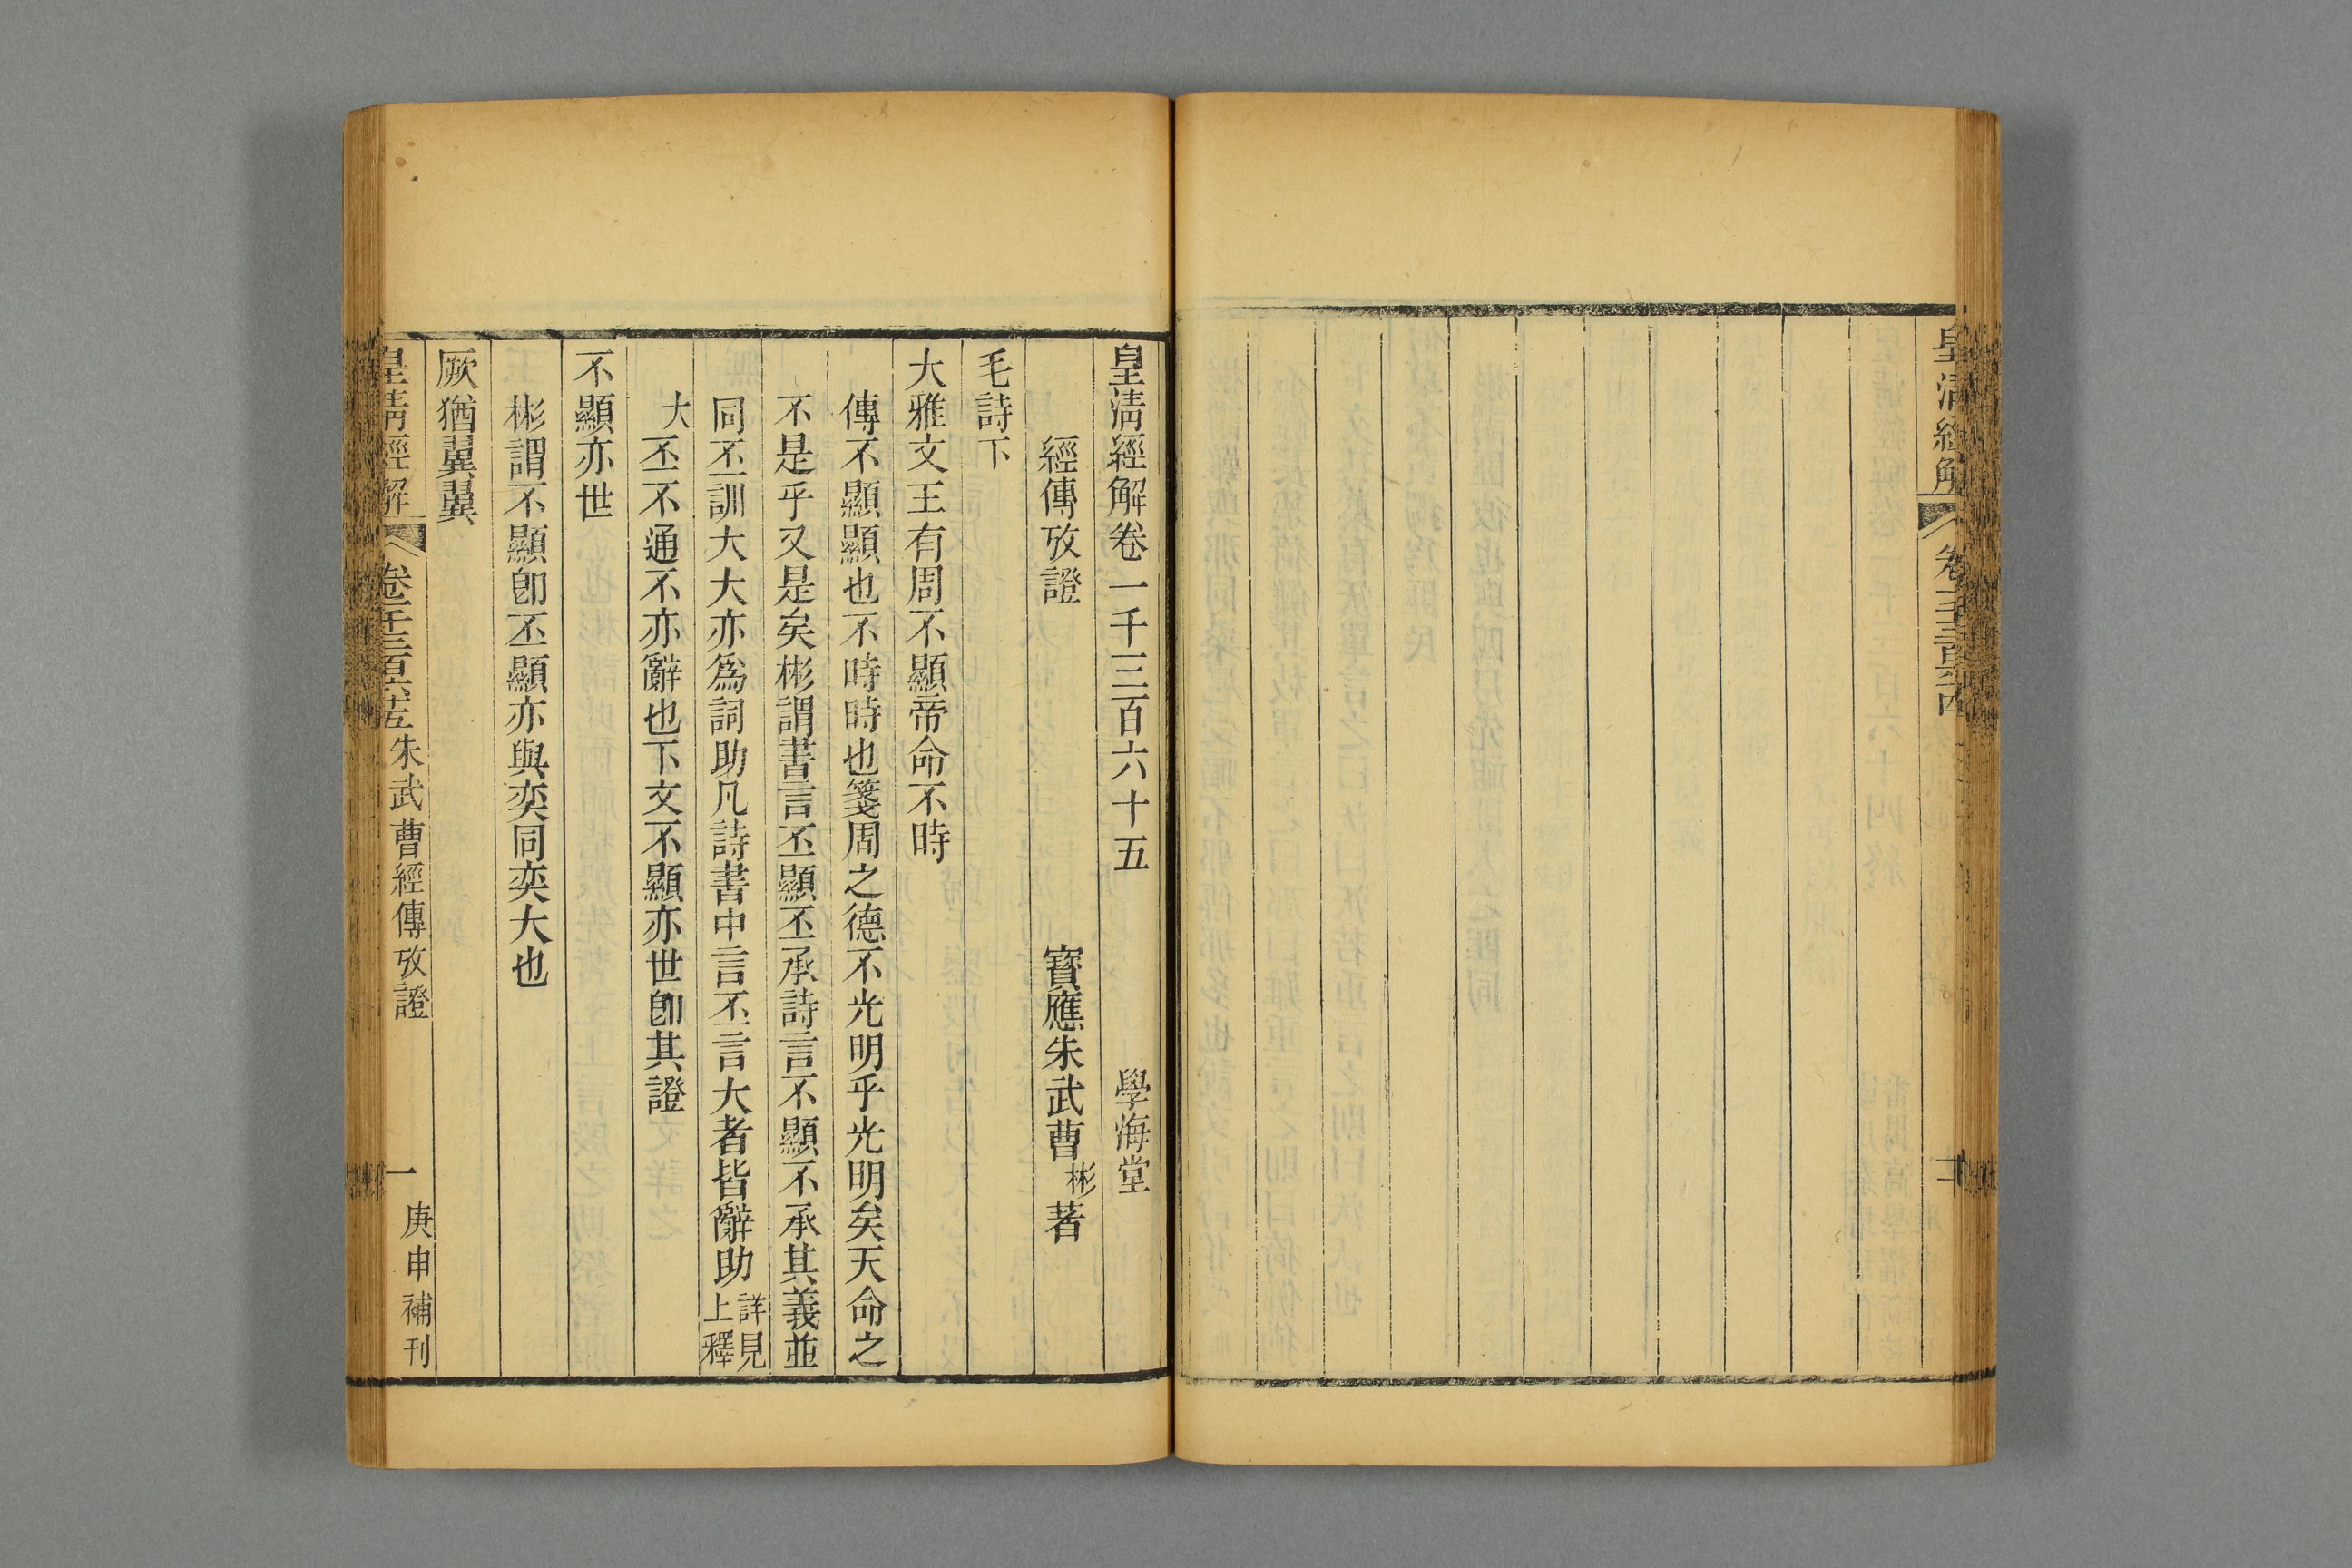 皇清經解
皇清經解卷一千三百六十五 學海堂
經傳攷證 寶應朱武曹彬著
毛詩下
大雅文王有周不顯帝命不時
傳不顯顯也不時時也箋周之德不光明乎光明矣天命之
不是乎又是矣彬謂書言丕顯丕承詩言不顯不承其義並
同丕訓大大亦爲詞助凡詩書中言丕言大者皆辭助詳見上釋
大丕不通不亦辭也下文不顯亦世卽其證
不顯亦世
彬謂不顯卽丕顯亦與奕同奕大也
厥猶翼翼
皇淸經解 卷一千三百六十五 朱武曹經傳攷證 一 庚申補刊